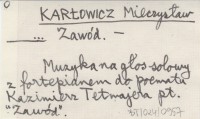 KARŁOWICZ Mieczysław
... Zawód. —
Muzyka na głos solowy
z fortepianem do poematu
Kazimierz Tetmajera pt.
"Zawód".